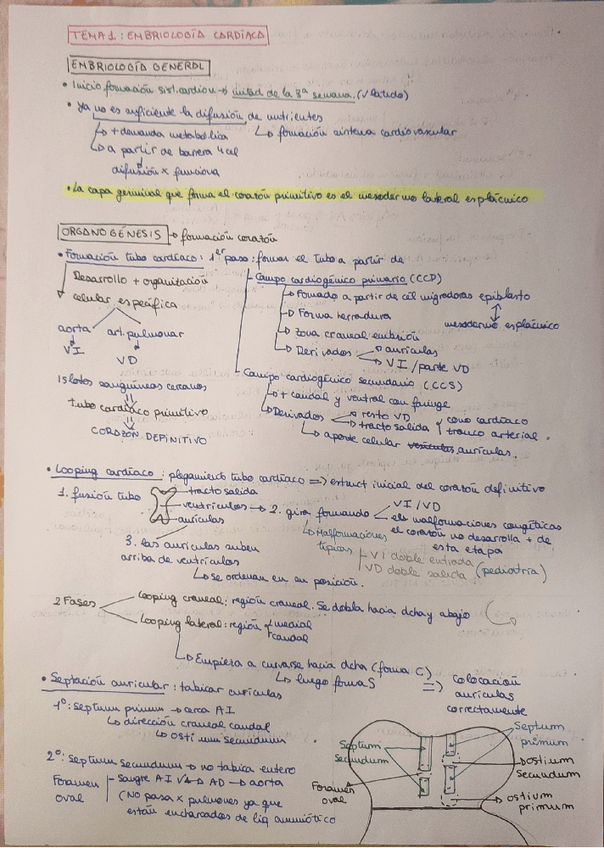 TEMA 1: EMBRIOLOGÍA CARDÍACA
EMBRIOLOGÍA GENERAL
• Inicio formación sist. cardiov → mitad de la 3ª semana. (✓ latido)
• Ya no es suficiente la difusión de nutrientes
↳ + demanda metabólica ↳ formación sistema cardiovascular
↳ a partir de barrera 4 cel
difusión x funciona
• La capa germinal que forma el corazón primitivo es el mesodermo lateral esplácnico
ORGANOGÉNESIS → formación corazón
• Formación tubo cardíaco: 1er paso: formar el tubo a partir de
Desarrollo + organización
celular específica
aorta art. pulmonar
VI VD
Islotes sanguíneos cercanos
tubo cardíaco primitivo
CORAZÓN DEFINITIVO
Campo cardiogénico primario (CCP)
↳ Formado a partir de cél migradoras epiblasto
mesodermo esplácnico
↳ Forma herradura
↳ Zona craneal embrión
↳ Derivados aurículas
VI / parte VD
Campo cardiogénico secundario (CCS)
↳ + caudal y ventral con faringe
↳ Derivados → resto VD
tracto salida cono cardíaco
tronco arterial.
↳ aporte celular aurículas.
• Looping cardíaco: plegamiento tubo cardíaco => estruct inicial del corazón definitivo
1. fusión tubo
tracto salida
ventrículos → 2. gira formando VI/VD
aurículas
els malformaciones congéticas
el corazón no desarrolla + de
esta etapa
↳ Malformaciones
típicas VI doble entrada
VD doble salida (pediatría)
3. las aurículas suben
arriba de ventrículos
↳ Se ordenan en su posición.
2 Fases
Looping craneal: región craneal. Se dobla hacia dcha y abajo
Looping lateral: región medial
caudal
↳ Empieza a curvarse hacia dcha (forma C)
↳ luego forma S => Colocación
aurículas
correctamente
• Septación auricular: tabicar aurículas
1º: Septum primum → cerca AI
↳ dirección craneal caudal
↳ ostium secundum
2º: Septum secundum → no tabica entero
Foramen
oval
Sangre AI ↔ AD → aorta
(No pasa x pulmones ya que
están encharcados de líq amniótico
Septum
secundum
Septum
primum
Foramen
oval
ostium
secundum
ostium
primum